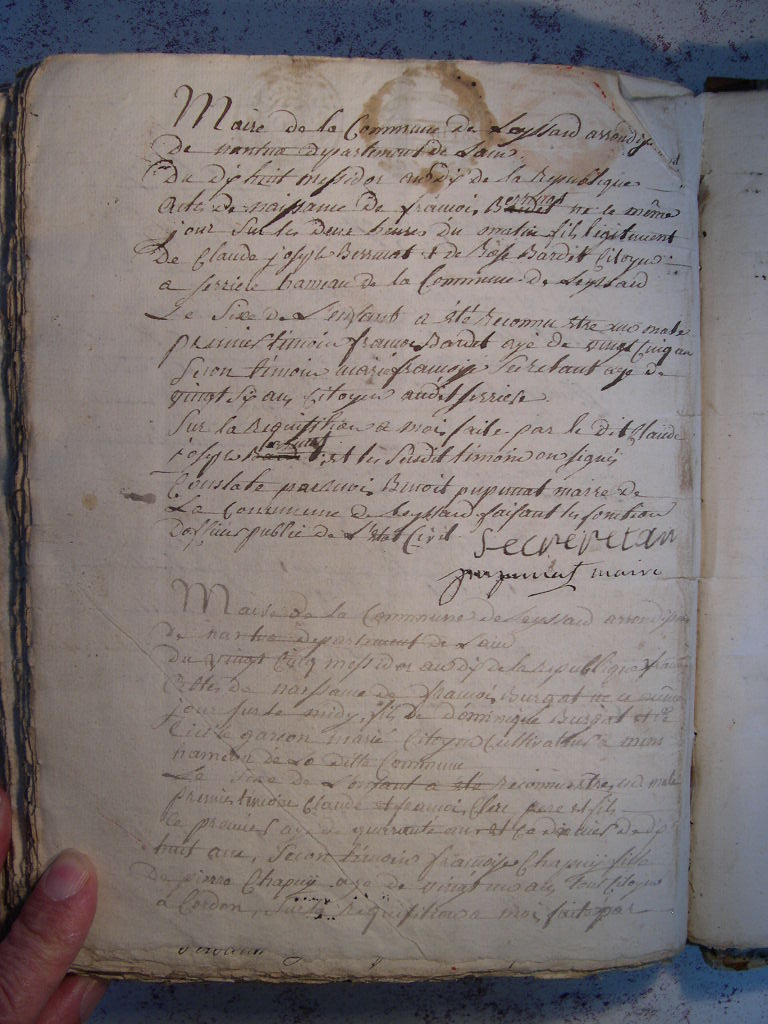 Maire de la Commune de Leyssard arrondis
De nantua departement de Lain
Du dix huit messidor an dix de la Republique
Actes de naissance de francois Berminot ne le même
jour sur les deux heures du matin fils legitiment
De Claude joseph Berminot & de Rose Bardet Citoyen
a serriere hameau de la Commune de Leyssard
Le Sexe de L'enfant a été Reconnu etre un male
premier timoin francois Bardet age de vingt Cinq an
Secon timoin marie francoise Secretant age de
vingt six ans Citoyen audit serriere
Sur la Requisition a moi faite par le dit Claude
joseph et les susdit timoins on signés
Constaté par moi Benoit pupunat maire de
La Commune de Leyssard faisant les fonction
Dofficier public de L'etat Civil Secreretan
pupunat maire
Maire de la Commune de Leyssard arrondis
de nantua departement de Lain
Du vingt Cinq messidor an dix de la Republique
Actes de naissance de francois Burgat ne ce même
jour sur le midy, fils de dominique Burgat et de
garson marié Citoyen Cultivateurs a
hameau de La ditte Commune
Le Sexe de Lenfant a été Reconnu etre un male
premier timoin Claude et francois Clerc pere et fils
le premier age de quarante an et Le de dix
huit ans, Secon timoin francoise Chapuy fille
De pierre Chapuy age de vingt ans Tous Citoyen
a Cordon, Sur la Requisition a moi faite par